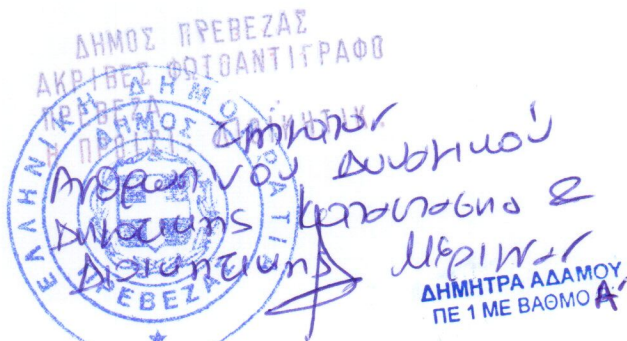 ΔΗΜΟΣ ΠΡΕΒΕΖΑΣ
ΑΚΡΙΒΕΣ ΦΩΤΟΑΝΤΙΓΡΑΦΟ
ΠΡΕΒΕΖΑ
ΕΛΛΗΝΙΚΗ ΔΗΜΟΚΡΑΤΙΑ
ΔΗΜΟΣ
ΠΡΕΒΕΖΑΣ
Τμήματος
Ανθρωπίνου Δυναμικού
Δημοτικής Κατάστασης &
Διοικητικής Μέριμνας
ΔΗΜΗΤΡΑ ΑΔΑΜΟΥ
ΠΕ 1 ΜΕ ΒΑΘΜΟ Α΄